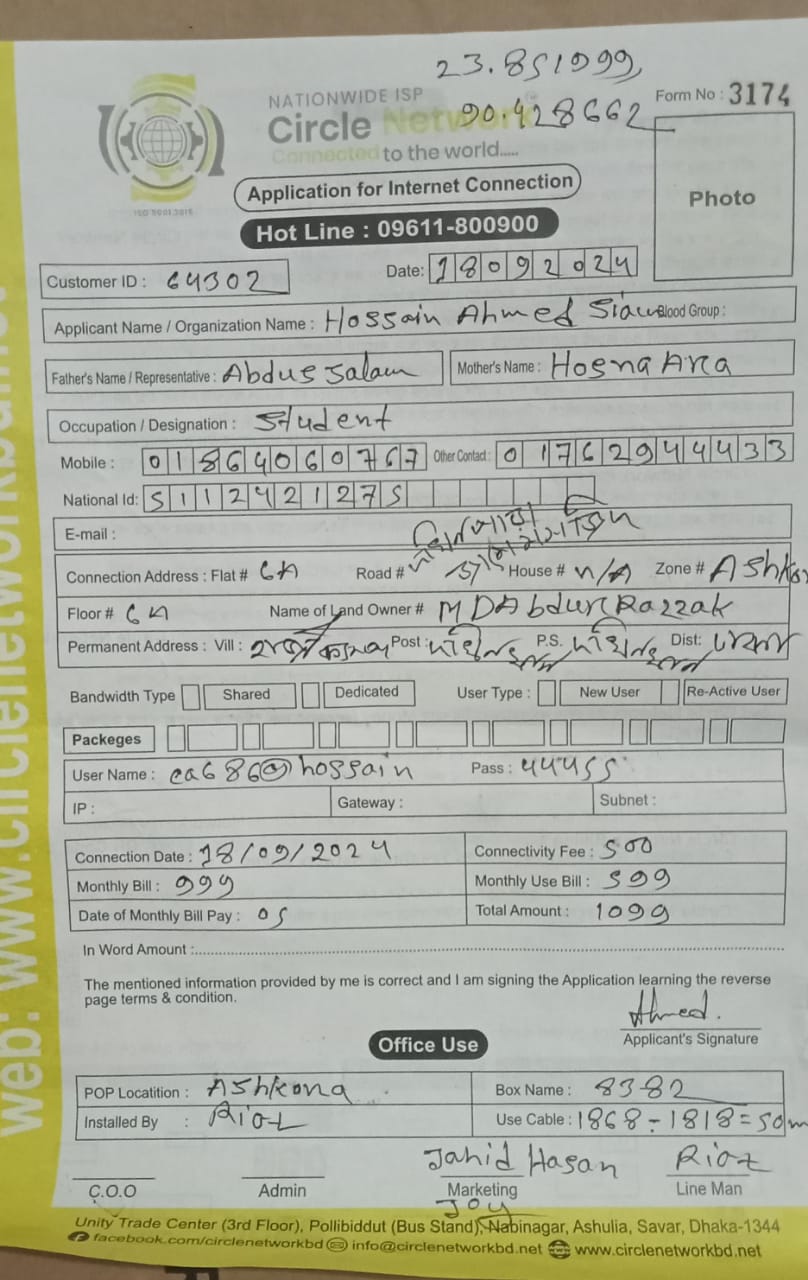 23.851999,
90.428662
NATIONWIDE ISP
Circle Network
Connected to the world.....
Form No : 3174
Photo
ISO 9001:2015
Application for Internet Connection
Hot Line : 09611-800900
Customer ID : 64302 Date: 18092024
Applicant Name / Organization Name : Hossain Ahmed Blood Group :
Father's Name / Representative : Abdus Salam Mother's Name : Hosna Ara
Occupation / Designation : Student
Mobile : 01864060767 Other Contact : 01762944433
National Id: 5112421275
E-mail :
Connection Address : Flat # 6A Road # House # n/A Zone # Ashko
Floor # 6A Name of Land Owner # MD Abdur Razzak
Permanent Address : Vill : Post : P.S. Dist:
Bandwidth Type Shared Dedicated User Type : New User Re-Active User
Packeges
User Name : ca686@hossain Pass : 44455
IP : Gateway : Subnet :
Connection Date : 18/09/2024 Connectivity Fee : 500
Monthly Bill : 999 Monthly Use Bill : 599
Date of Monthly Bill Pay : 05 Total Amount : 1099
In Word Amount :
The mentioned information provided by me is correct and I am signing the Application learning the reverse
page terms & condition.
Ahmed.
Applicant's Signature
Office Use
POP Locatition : Ashkona Box Name : 8382
Installed By : Riaz Use Cable : 1868 - 1818 = 50m
Jahid Hasan Riaz
C.O.O Admin Marketing Line Man
Joy
Unity Trade Center (3rd Floor), Pollibiddut (Bus Stand), Nabinagar, Ashulia, Savar, Dhaka-1344
facebook.com/circlenetworkbd info@circlenetworkbd.net www.circlenetworkbd.net
web: www.circlenetworkbd.net